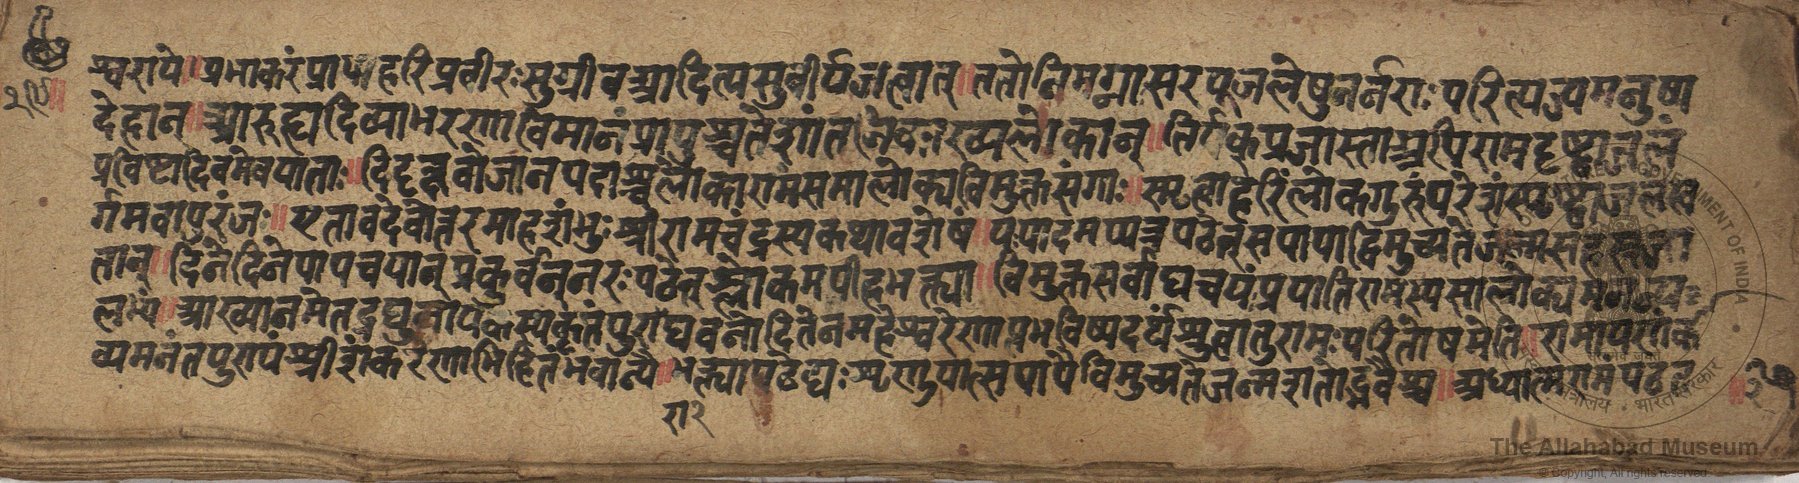 श्वरापे॥प्रभाकरं प्राप हरिप्रवीरः सुग्रीव आदित्यसुवीर्यजत्वात्॥ततो निमग्नाः सरयूजलेषु नर्नराः परित्यज्य मनुष्य
देहान्॥आरुह्य दिव्याभरणा विमानं प्रापुश्च ते शांतनिकाख्यलोकान्॥तिर्यक्प्रजास्ता अपि रामदृष्ट्वा जलं
प्रविष्टा दिवमेव याताः॥दिदृक्षवो जानपदाश्च लोका रामं समालोक्य विमुक्तसंगाः॥स्मृत्वा हरिं लोकगुरुं परेशं स्पृष्ट्वा जलं स्व
र्गमवापुरंजः॥एतावदेवोत्तरमाह शंभुः श्रीरामचंद्रस्य कथावशेषं॥यः पादमप्यत्र पठेत्स पापाद्विमुच्यते जन्मसहस्रजा
तात्॥दिने दिने पापचयान् प्रकुर्वन् नरः पठेत् श्लोकमपीह भक्त्या॥विमुक्तसर्वाघचयः प्रयाति रामस्य सालोक्यमनन्य
लभ्यं॥आख्यानमेतद्रघुनायकस्य कृतं पुरा राघवनोदितेन महेश्वरेणाप्तभविष्यदर्थं श्रुत्वा तु रामः परितोषमेति॥रामायणं का
व्यमनंतपुण्यं श्रीशंकरेणाभिहितं भवान्यै॥भक्त्या पठेद्यः शृणुयात्स पापैर्विमुच्यते जन्मशतोद्भवैश्च॥अध्यात्मराम पठत
रा २
The Allahabad Museum
© Copyright, All rights reserved